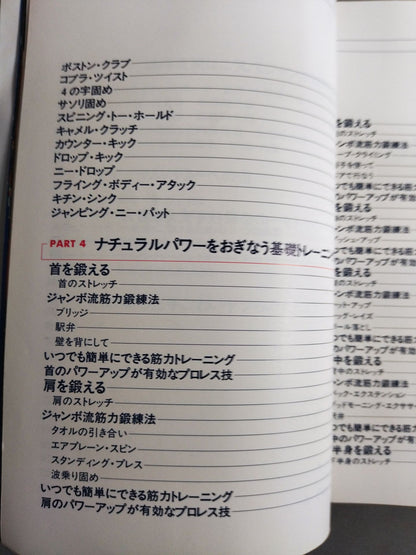 ボストン・クラブ
コブラ・ツイスト
4の字固め
サソリ固め
スピニング・トー・ホールド
キャメル・クラッチ
カウンター・キック
ドロップ・キック
ニー・ドロップ
フライング・ボディー・アタック
キチン・シンク
ジャンピング・ニー・パット
PART 4 ナチュラルパワーをおぎなう基礎トレーニン
首を鍛える
首のストレッチ
ジャンボ流筋力鍛練法
ブリッジ
駅弁
壁を背にして
いつでも簡単にできる筋力トレーニング
首のパワーアップが有効なプロレス技
肩を鍛える
肩のストレッチ
ジャンボ流筋力鍛練法
タオルの引き合い
エアプレーン・スピン
スタンディング・プレス
波乗り固め
いつでも簡単にできる筋力トレーニング
肩のパワーアップが有効なプロレス技
を鍛える
のストレッチ
ャンボ流筋力鍛練法
ープ・クライミング
手を使って
アで行なう
つでも簡単にできる筋
のパワーアップが有
を鍛える
のストレッチ
ャンボ流筋力鍛練法
ッシュ・アップ
つでも簡単にできる筋
のパワーアップが有
を鍛える
のストレッチ
ャンボ流筋力鍛練
ット・アップ
ッグ・レイズ
ール落とし
つでも簡単にできる
のパワーアップが有
中を鍛える
中のストレッチ
ャンボ流筋力鍛練
ック・エクステンション
ッドモーニング・エクササ
弁
つでも簡単にできる筋
中のパワーアップが
半身を鍛える
半身のストレッチ